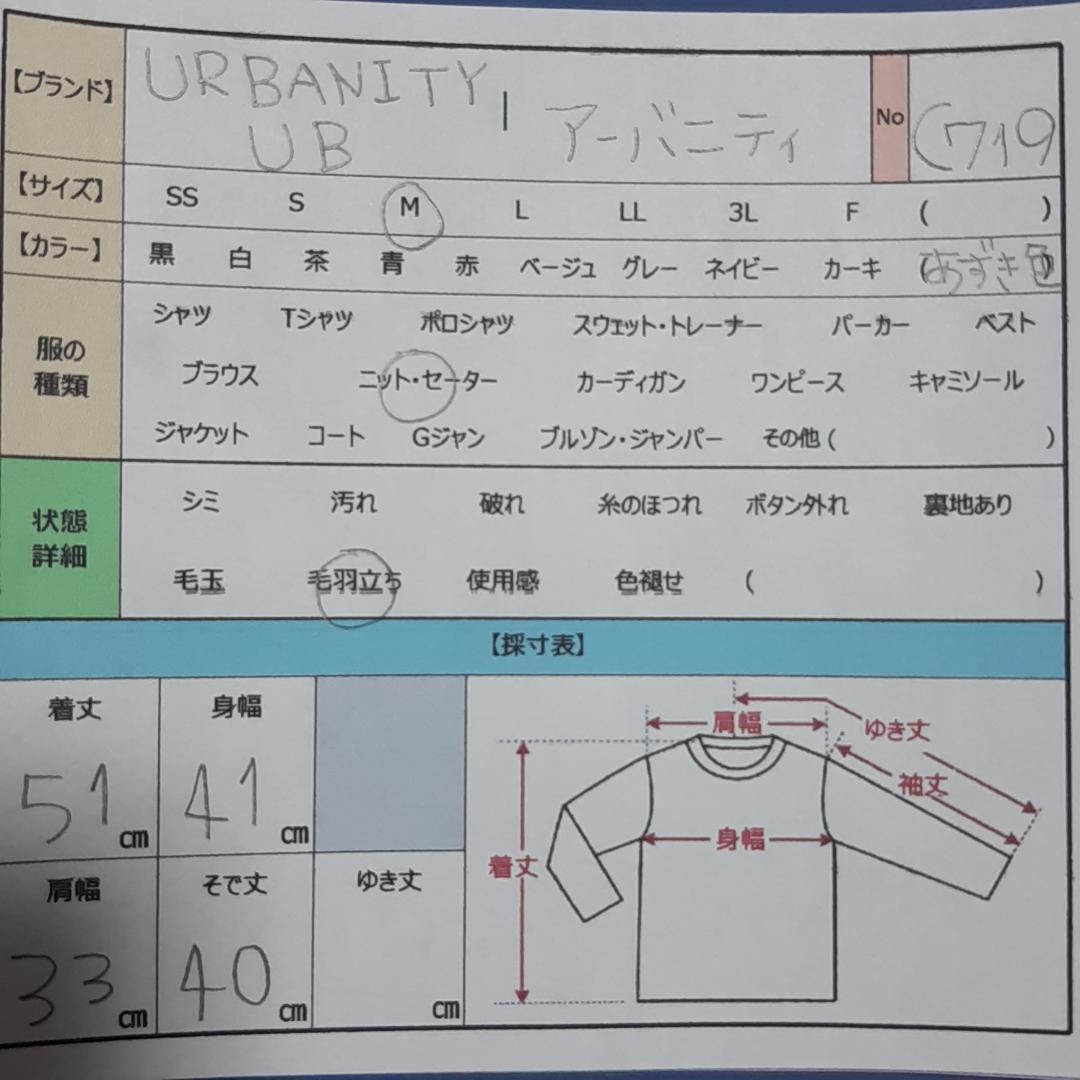 【ブランド】 URBANITY UB | アーバニティ No C719
【サイズ】 SS S M L LL 3L F ( )
【カラー】 黒 白 茶 青 赤 ベージュ グレー ネイビー カーキ (あずき色)
服の種類 シャツ Tシャツ ポロシャツ スウェット・トレーナー パーカー ベスト
ブラウス ニット・セーター カーディガン ワンピース キャミソール
ジャケット コート Gジャン ブルゾン・ジャンパー その他 ( )
状態詳細 シミ 汚れ 破れ 糸のほつれ ボタン外れ 裏地あり
毛玉 毛羽立ち 使用感 色褪せ ( )
【採寸表】
着丈 身幅
51 cm 41 cm
肩幅 そで丈 ゆき丈
33 cm 40 cm cm
肩幅 ゆき丈
袖丈
身幅
着丈